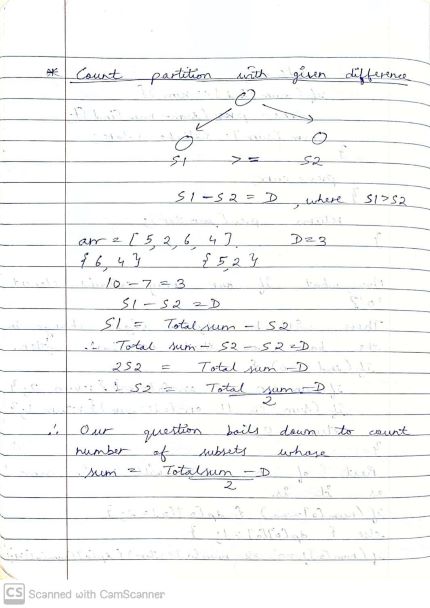 * Count partition with given difference
S1 >= S2
S1 - S2 = D , where S1>S2
arr = [ 5, 2, 6, 4 ]. D=3
{ 6, 4 } { 5, 2 }
10 - 7 = 3
S1 - S2 = D
S1 = Total sum - S2
∴ Total sum - S2 - S2 = D
2S2 = Total sum - D
∴ S2 = Total sum - D
2
∴ Our question boils down to count
number of subsets whose
sum = Totalsum - D
2
CS Scanned with CamScanner